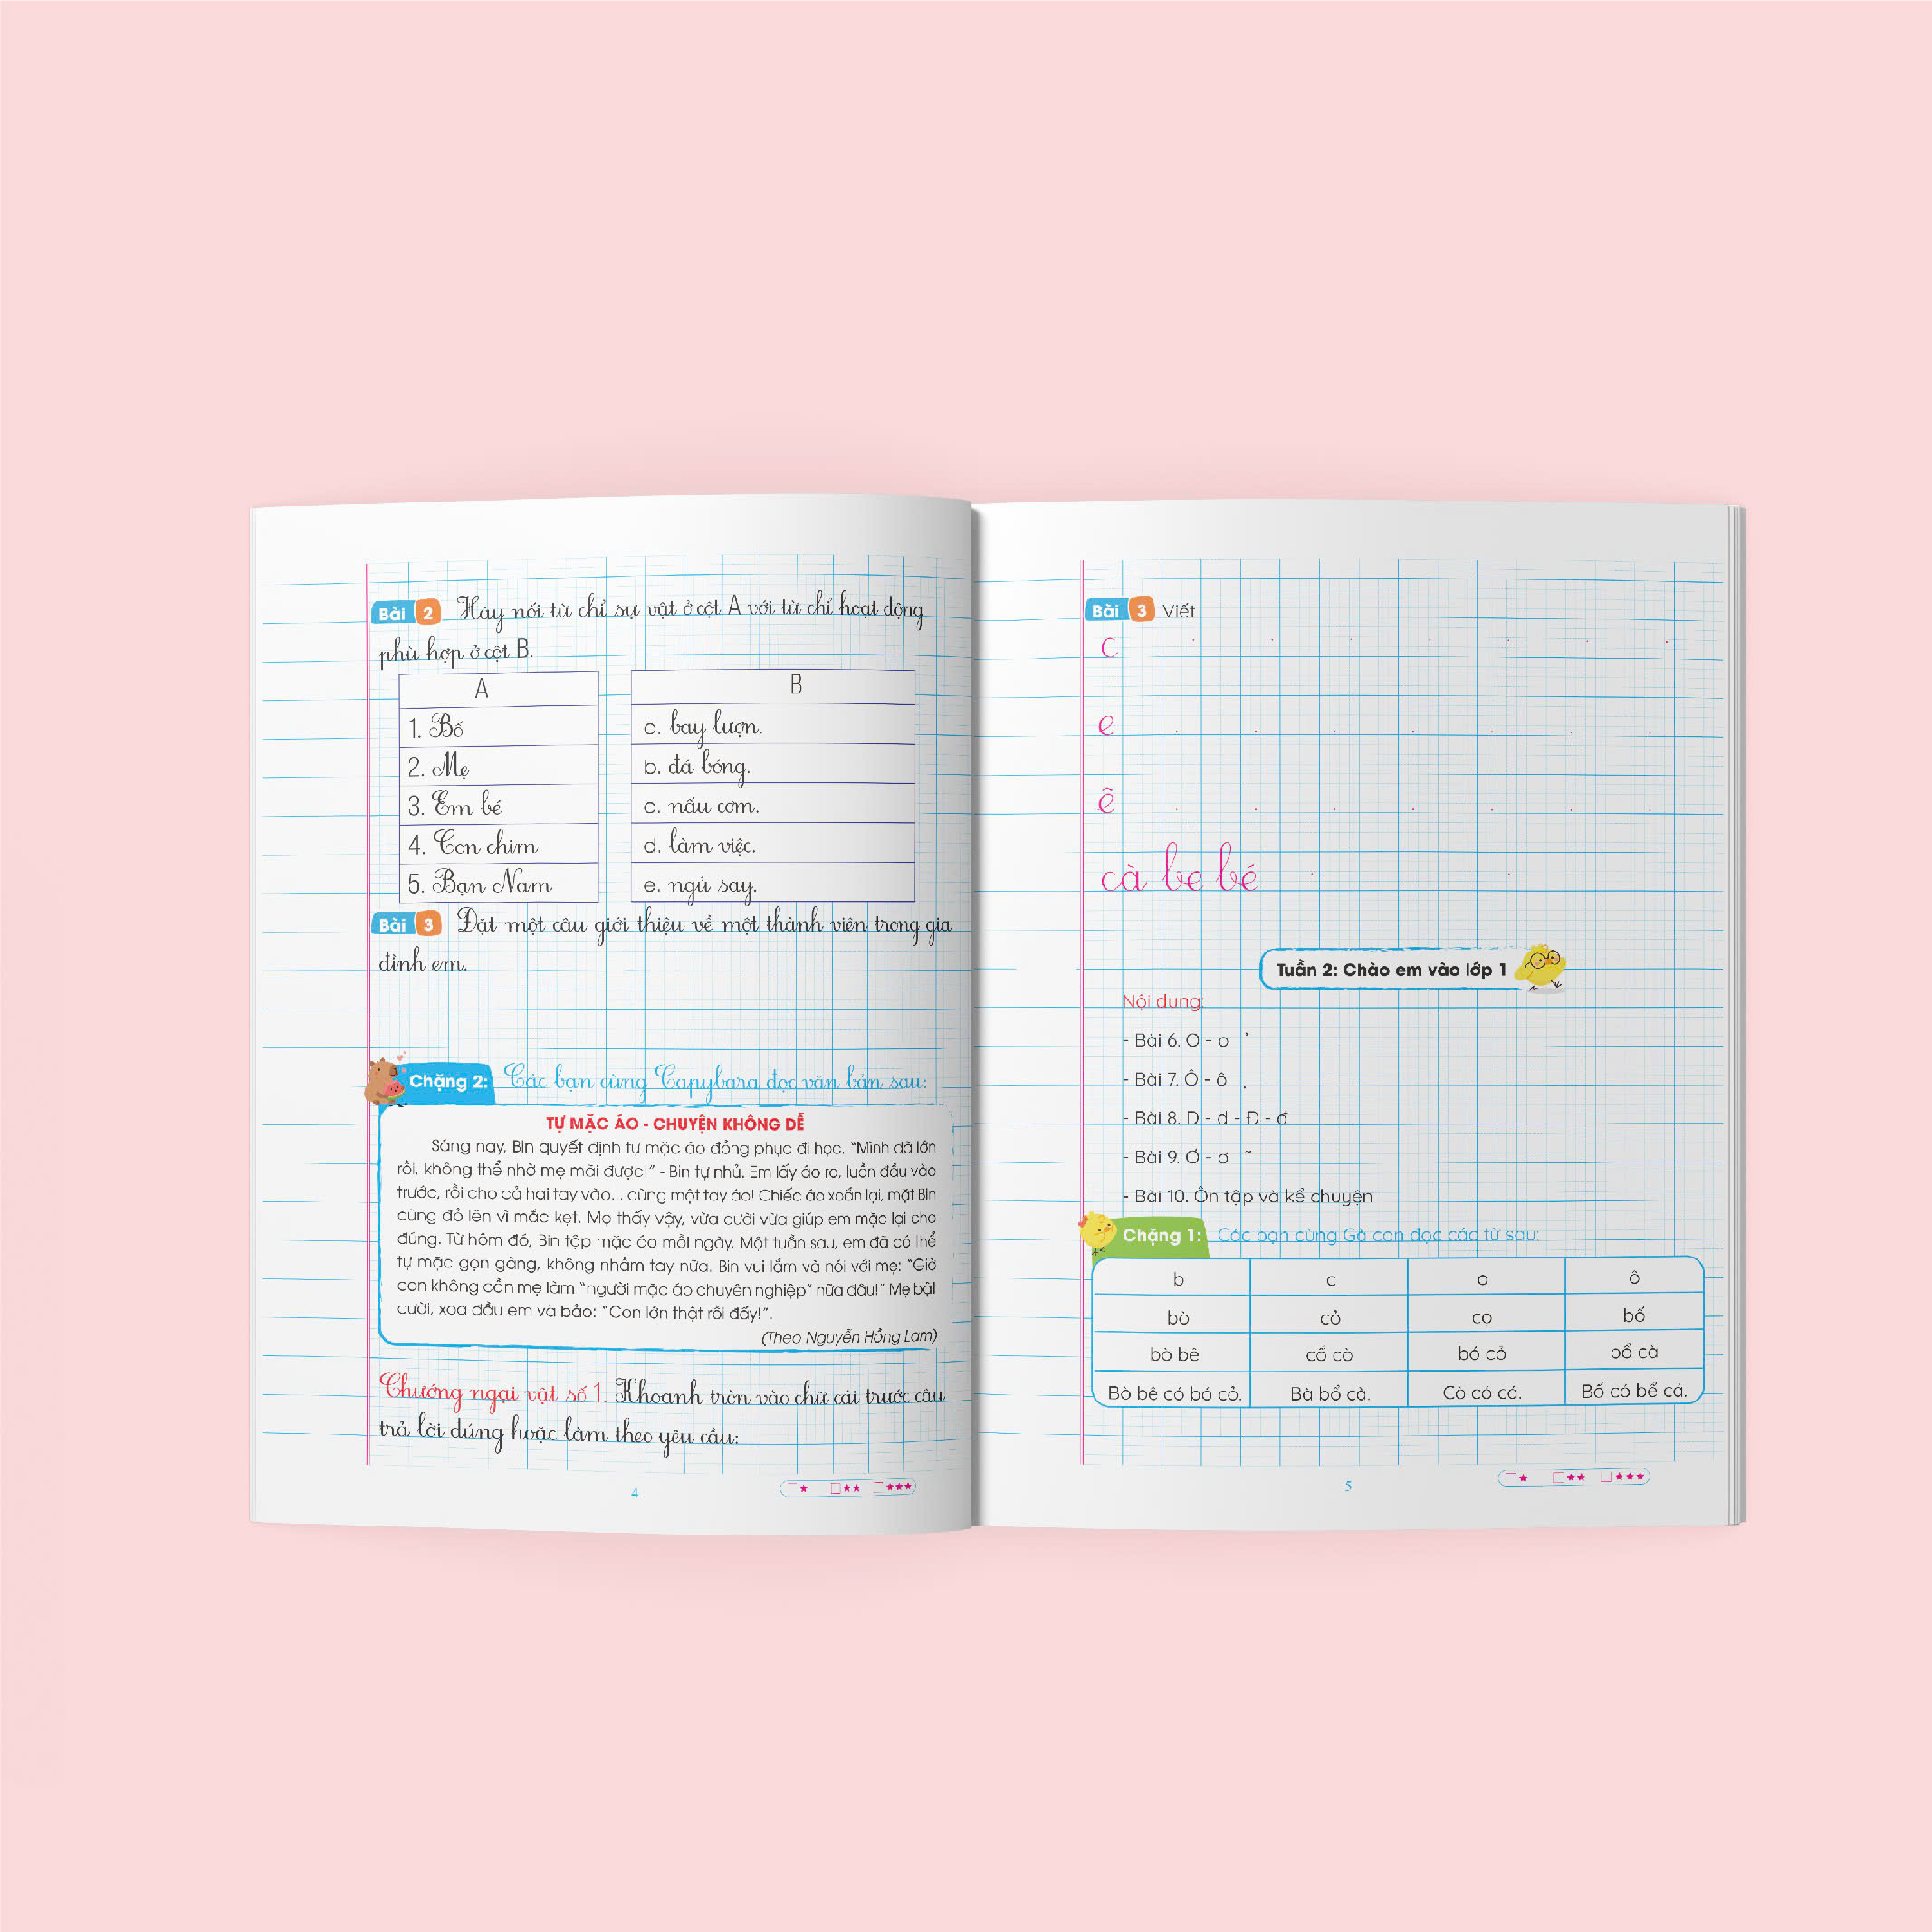 Bài 2 Hãy nối từ chỉ sự vật ở cột A với từ chỉ hoạt động
phù hợp ở cột B.
A
1. Bố
2. Mẹ
3. Em bé
4. Con chim
5. Bạn Nam
B
a. bay lượn.
b. đá bóng.
c. nấu cơm.
d. làm việc.
e. ngủ say.
Bài 3 Đặt một câu giới thiệu về một thành viên trong gia
đình em.
Chặng 2: Các bạn cùng Capybara đọc văn bản sau:
TỰ MẶC ÁO - CHUYỆN KHÔNG DỄ
Sáng nay, Bin quyết định tự mặc áo đồng phục đi học. “Mình đã lớn
rồi, không thể nhờ mẹ mãi được!” - Bin tự nhủ. Em lấy áo ra, luồn đầu vào
trước, rồi cho cả hai tay vào... cùng một tay áo! Chiếc áo xoắn lại, mặt Bin
cũng đỏ lên vì mắc kẹt. Mẹ thấy vậy, vừa cười vừa giúp em mặc lại cho
đúng. Từ hôm đó, Bin tập mặc áo mỗi ngày. Một tuần sau, em đã có thể
tự mặc gọn gàng, không nhầm tay nữa. Bin vui lắm và nói với mẹ: “Giờ
con không cần mẹ làm “người mặc áo chuyên nghiệp” nữa đâu!” Mẹ bật
cười, xoa đầu em và bảo: “Con lớn thật rồi đấy!”.
(Theo Nguyễn Hồng Lam)
Chướng ngại vật số 1. Khoanh tròn vào chữ cái trước câu
trả lời đúng hoặc làm theo yêu cầu:
4
Bài 3 Viết
c
e
ê
cà be bé
Tuần 2: Chào em vào lớp 1
Nội dung:
- Bài 6. O - o ̉
- Bài 7. Ô - ô .
- Bài 8. D - d - Đ - đ
- Bài 9. Ơ - ơ ~
- Bài 10. Ôn tập và kể chuyện
Chặng 1: Các bạn cùng Gà con đọc các từ sau:
b c o ô
bò cỏ cọ bố
bò bê cổ cò bó cỏ bổ cà
Bò bê có bó cỏ. Bà bổ cà. Cò có cá. Bố có bể cá.
5